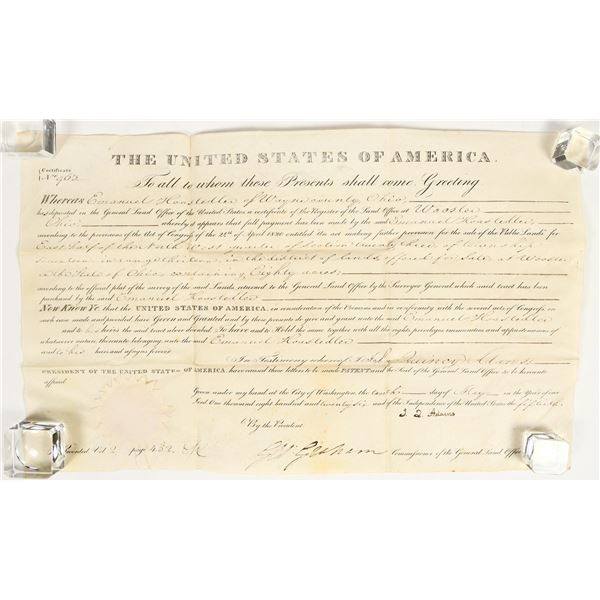 Certificate
No 762
THE UNITED STATES OF AMERICA.
To all to whom these Presents shall come, Greeting
WHEREAS Emanuel Hoastedler of Wayne county, Ohio,
has deposited in the General Land Office of the United States a certificate of the Register of the Land Office at Wooster
Ohio whereby it appears that full payment has been made by the said Emanuel Hoastedler
according to the provisions of the Act of Congress of the 24th of April 1820 entitled An act making further provision for the sale of the Public Lands for
East half of the North West quarter of Section twenty three of Township
in range thirteen in the district of lands offered for sale at Wooster
in the State of Ohio, containing Eighty acres
according to the official plat of the survey of the said Lands returned to the General Land Office by the Surveyor General which said tract has been
purchased by the said Emanuel Hoastedler
NOW KNOW YE that the UNITED STATES OF AMERICA, in consideration of the Premises and in conformity with the several acts of Congress in
such case made and provided have Given and Granted and by these presents do give and grant unto the said Emanuel Hoastedler
and to his heirs the said tract above described To have and to Hold the same together with all the rights privileges immunities and appurtenances of
whatsoever nature thereunto belonging unto the said Emanuel Hoastedler
and to his heirs and assigns forever
In Testimony whereof I John Quincy Adams
PRESIDENT OF THE UNITED STATES OF AMERICA, have caused these letters to be made PATENT and the Seal of the General Land Office to be hereunto
affixed.
Given under my hand at the City of Washington the day of May in the Year of our
Lord One thousand eight hundred and twenty six and of the Independence of the United States the fiftieth
J. Q. Adams
By the President
Recorded Vol 2 page 432
Geo Graham Commissioner of the General Land Office